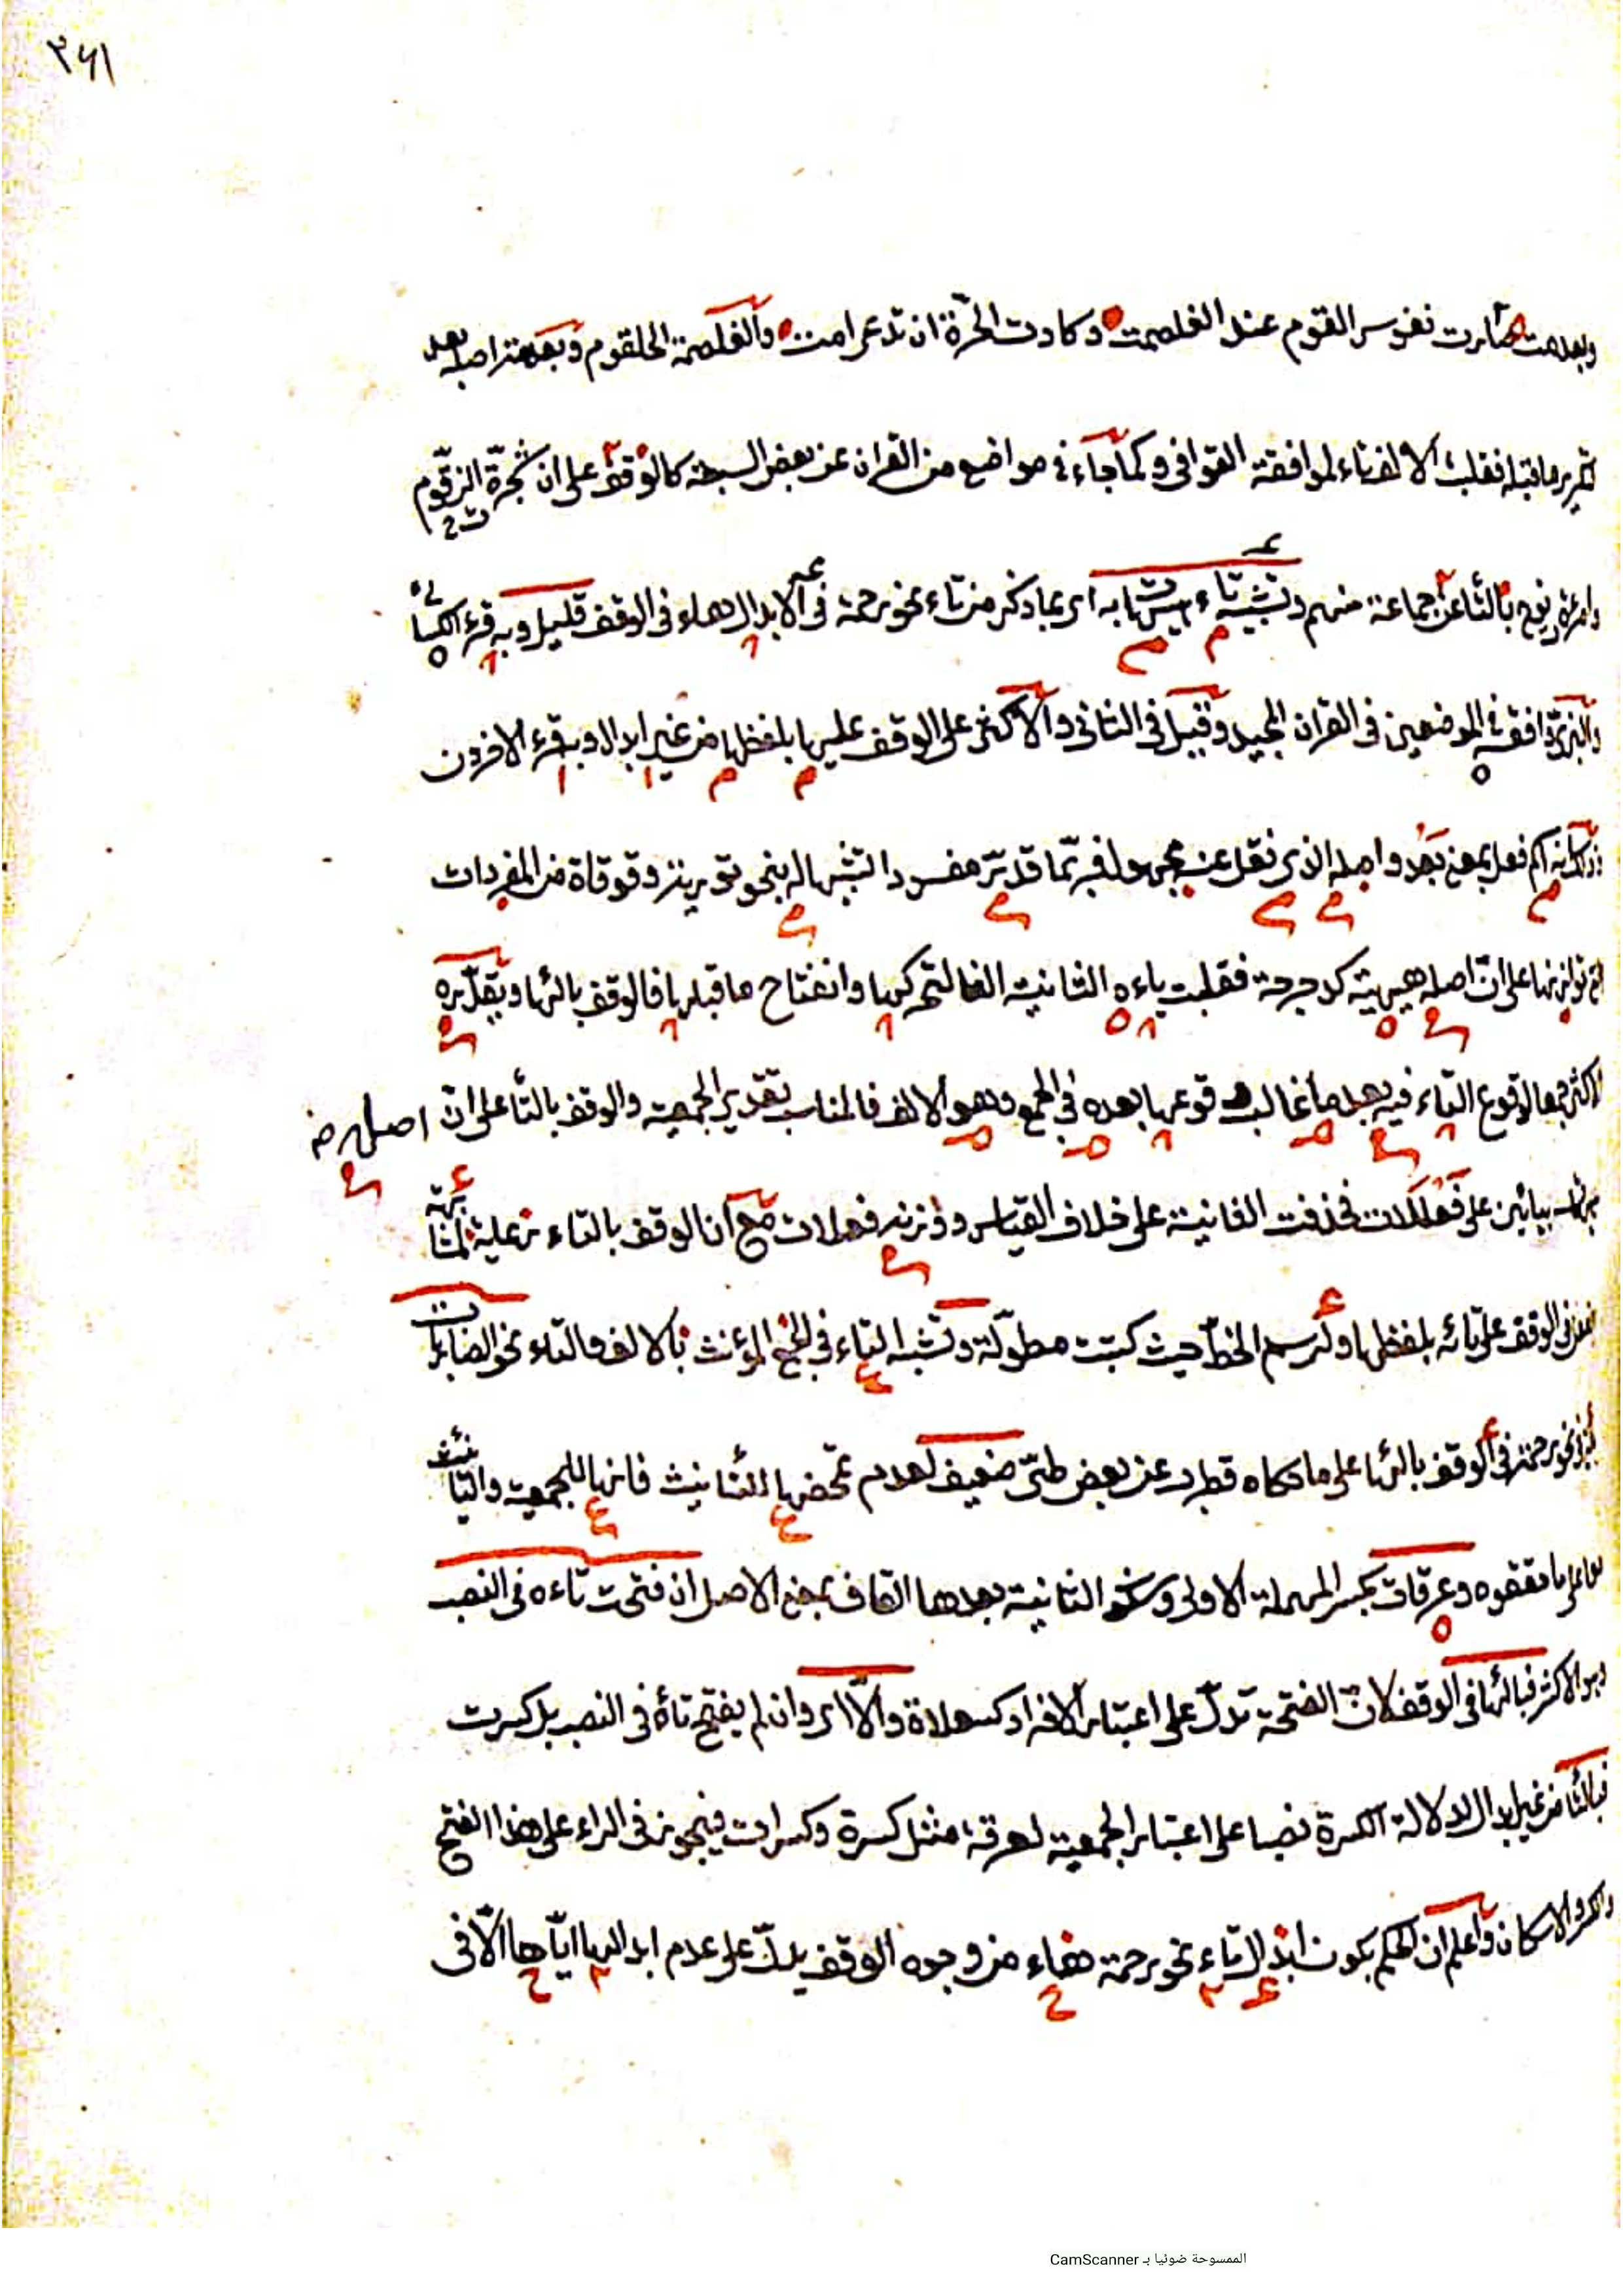 ٣٤١
وبعدمت صارت نفوس القوم عند الغلصمت وكادت الحرّة ان تدعى امت والغلصمة الحلقوم وبعدمت اصله بعد
ما قبله فقلبت الالف تاء لموافقة القوافي وكما جاء في مواضع من القران عن بعض السبعة كالوقف على ان شجرة الزقّوم
بالتا عن جماعة منهم وتشبيه تاء هيهات به اى بما ذكر من تاء نحو رحمة فى الابدال هاء فى الوقف قليل وبه قرء الكسائى
والبزى وافقه فى الموضعين فى القران المجيد وقنبل فى الثانى والاكثر على الوقف عليها بلفظها من غير ابدال وبه قرء الاخرون
اسم فعل بمعنى بعد واصله الذى نقل عنه مجهول فربّما قدّر مفردا لتشبهاله بنحو وقوقاة من المفردات
على انّ اصله هيهية كدحرجة فقلبت ياءه الثانية الفا لتحركها وانفتاح ما قبلها فالوقف بالها ويقدّره
لوقوع التاء فيه بعد ما غالب وقوعها بعده فى الجمع وهو الالف فالمناسب تقدير الجمعية والوقف بالتا على ان اصله
بيائين على فعللات فحذفت الثانية على خلاف القياس ووزنه فعلات مع ان الوقف بالتاء رعاية لمشابهة
الوقف على تائه بلفظها ولرسم الخطّ حيث كتبت مطولة وتشبه التاء فى الجمع المؤنث بالالف والتاء نحو الضاربات
نحو رحمة فى الوقف بالها على ما حكاه قطرب عن بعض طىّ ضعيف لعدم تمحضها للتانيث فانها للجمعية والتانيث
وعرقات بكسر المهملة الاولى وسكون الثانية بعدها القاف بمعنى الاصل ان فتحت تاءه فى النصب
وهو الاكثر فبالها فى الوقف لانّ الفتحة تدلّ على اعتبار الافراد كسعلاة والّا اى وان لم يفتح تاؤه فى النصب بل كسرت
فبالتا من غير ابدال لدلالة الكسرة نصبا على اعتبار الجمعية لعرقة مثل كسرة وكسرات فيجوز فى الراء على هذا الفتح
والكسر والاسكان واعلم ان الحكم بكون ابدال تاء نحو رحمة هاء من وجوه الوقف يدلّ على عدم ابدالها ايّاها الّا فى
الممسوحة ضوئيا بـ CamScanner